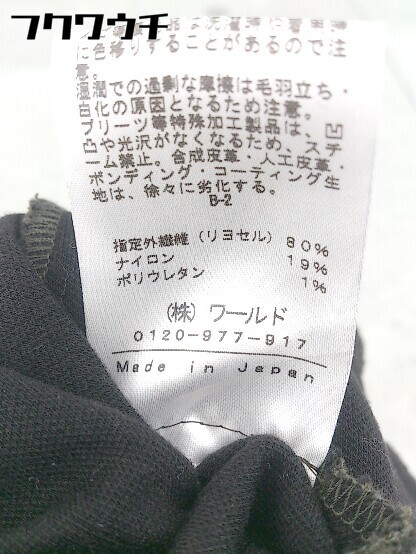 フクウクチ
に色移りすることがあるので注
意。
湿潤での過剰な摩擦は毛羽立ち・
白化の原因となるため注意。
プリーツ等特殊加工製品は、凹
凸や光沢がなくなるため、スチ
ーム禁止。合成皮革・人工皮革・
ボンディング・コーティング生
地は、徐々に劣化する。
B-2
指定外繊維(リヨセル) 80%
ナイロン 19%
ポリウレタン 1%
(株)ワールド
0120-977-917
Made in Japan